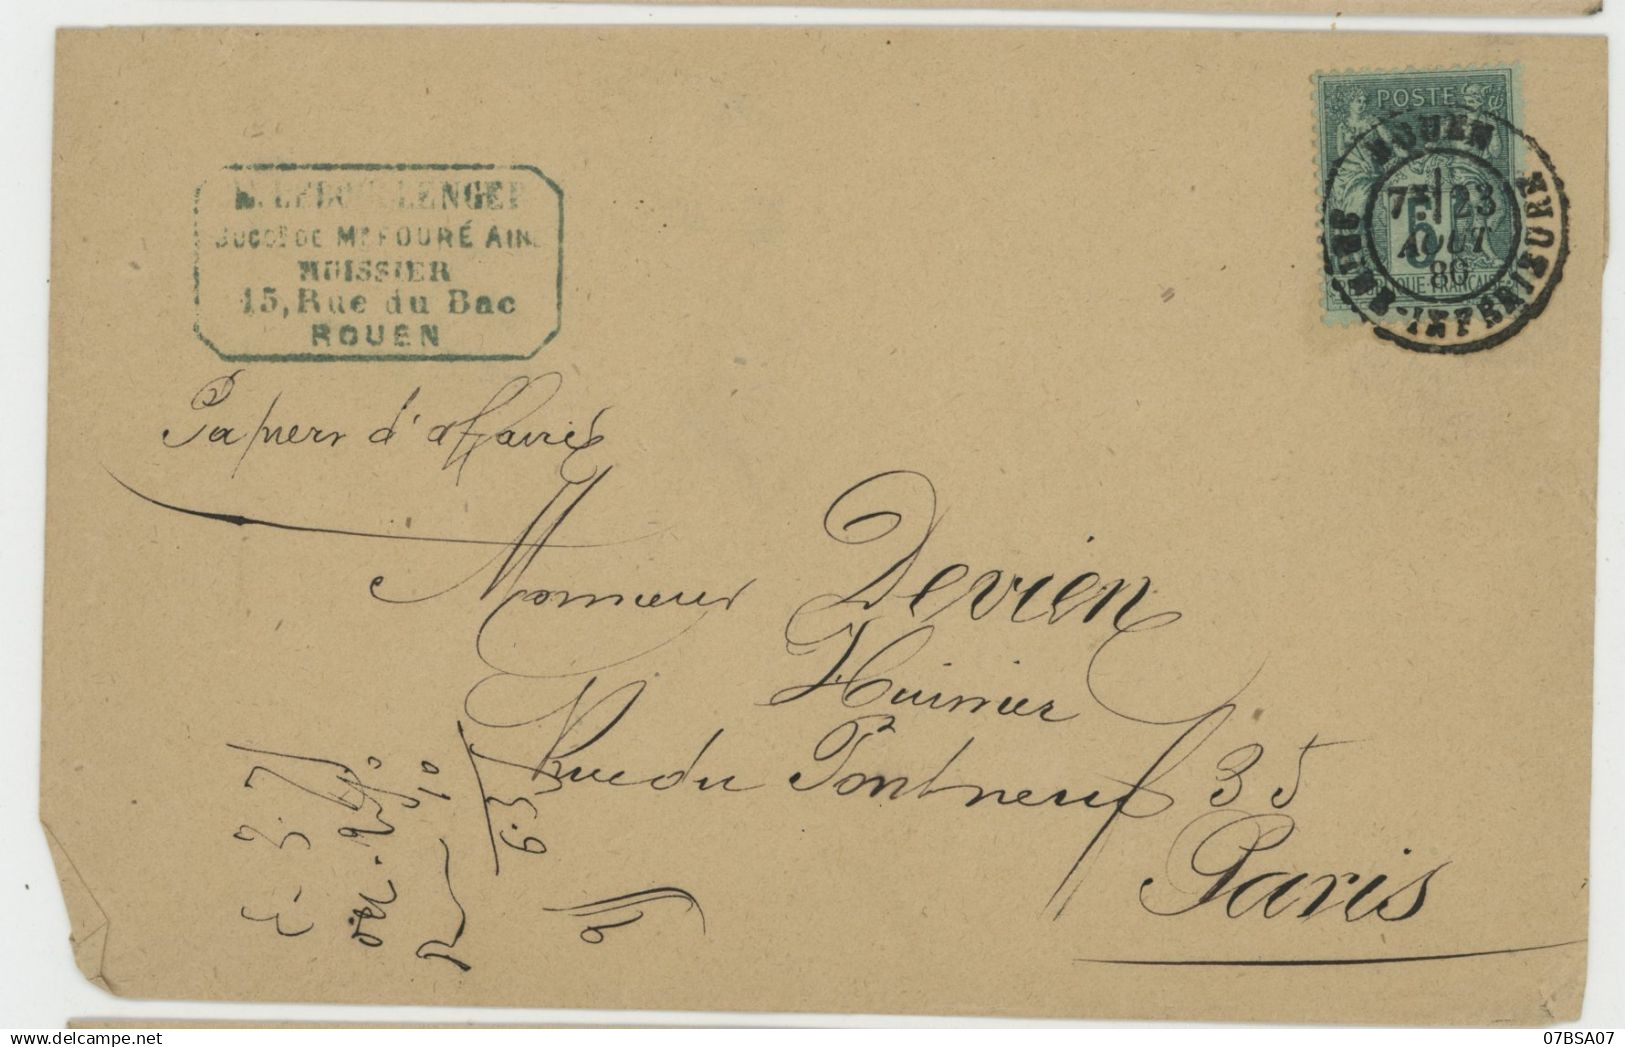 LENGER
DE Mᵉ FOURÉ AIN
HUISSIER
15, Rue du Bac
ROUEN
POSTE
5
REPUBLIQUE FRANÇAISE
ROUEN
7ᴱ 23
AOUT
80
SEINE-INFERIEURE
Papiers d'affaires
Monsieur Devien
Huissier
Rue du Pontneuf 35
Paris
6.3
10
07BSA07